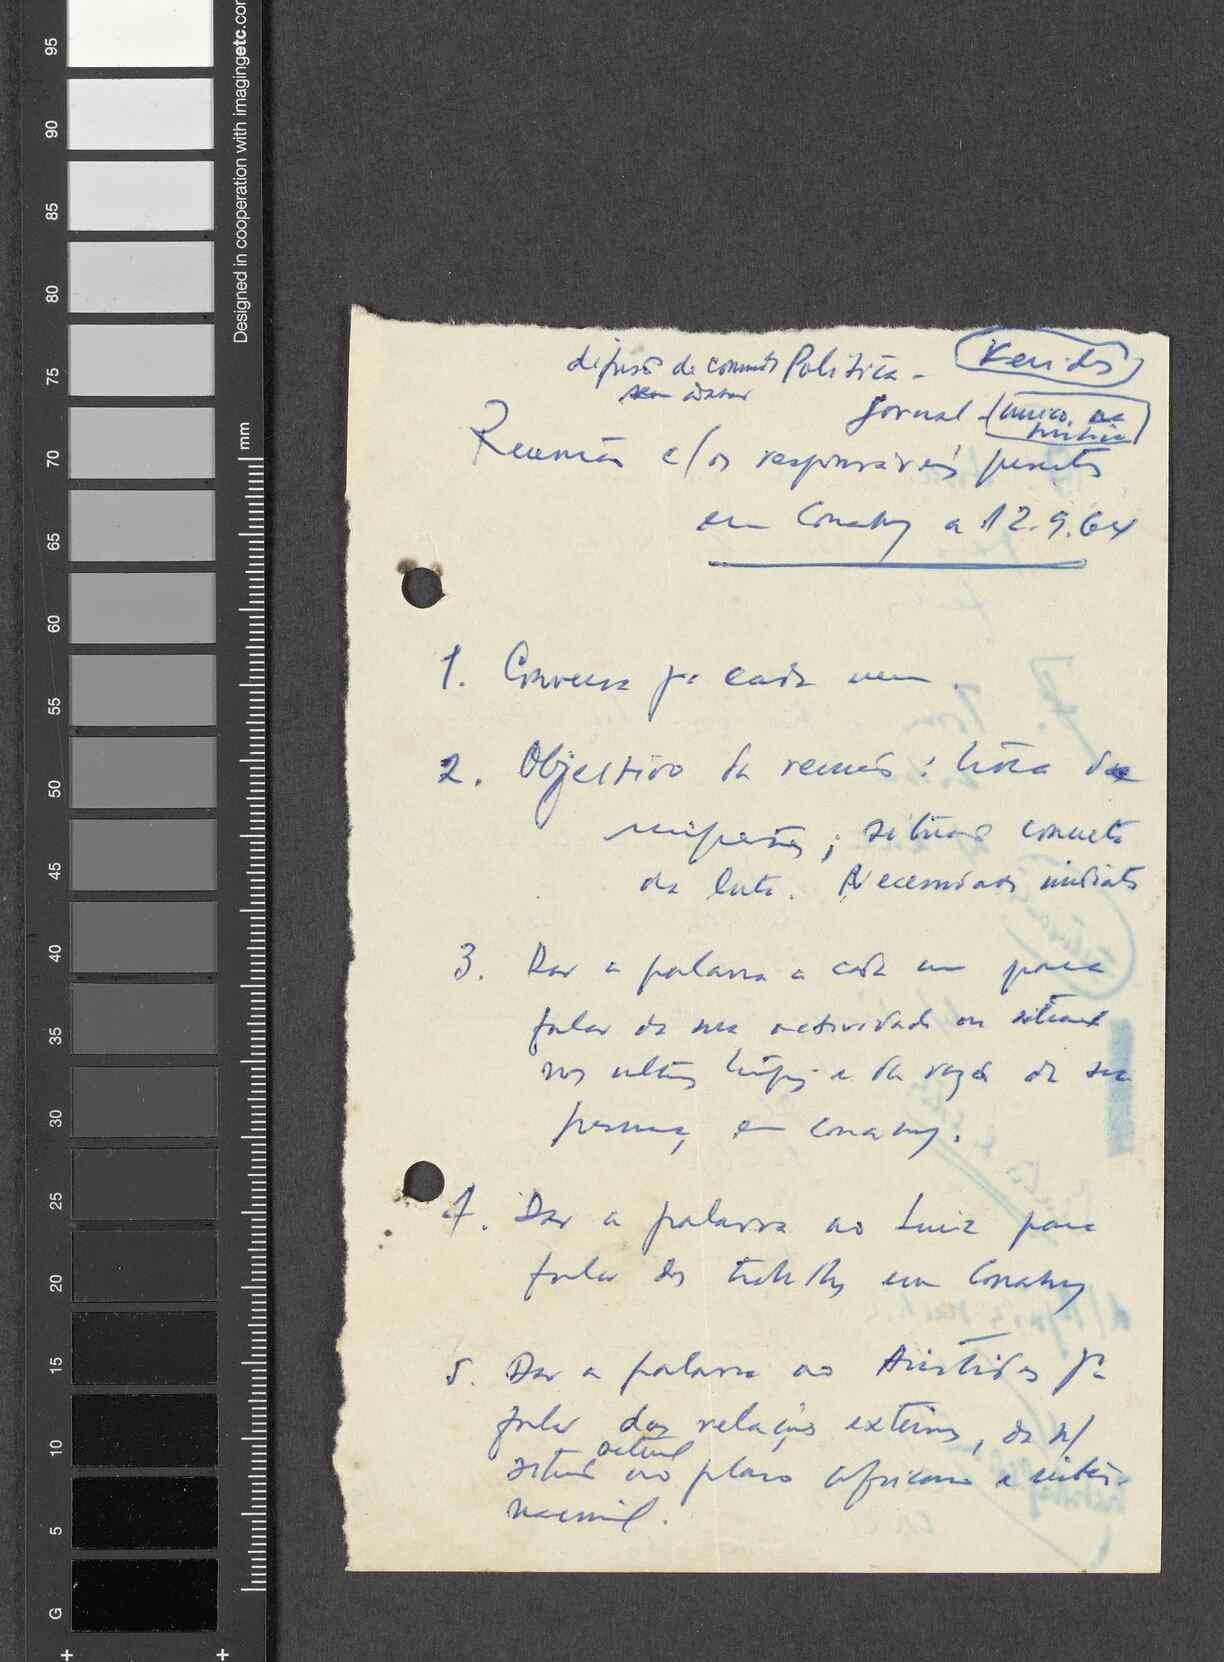 95
90
85
80
75
70
65
60
55
50
45
40
35
30
25
20
15
10
5
G
Designed in cooperation with imagingetc.com
mm
difusão de Política -
Jornal -
Reunião c/ os responsáveis presentes
em Conakry a 12.9.64
1. Conversa pa cada um.
2. Objectivo da reunião: troca de
; situação concreta
da luta. Necessidades imediatas
3. Dar a palavra a cada um para
falar da sua actividade ou situação
nos ultos tempos e da razão da sua
presença em Conakry.
4. Dar a palavra ao Luiz para
falar dos trabalhos em Conakry
5. Dar a palavra ao Aristides pa
falar das relações exteriores, da n/
situação actual no plano africano e inter-
nacional.